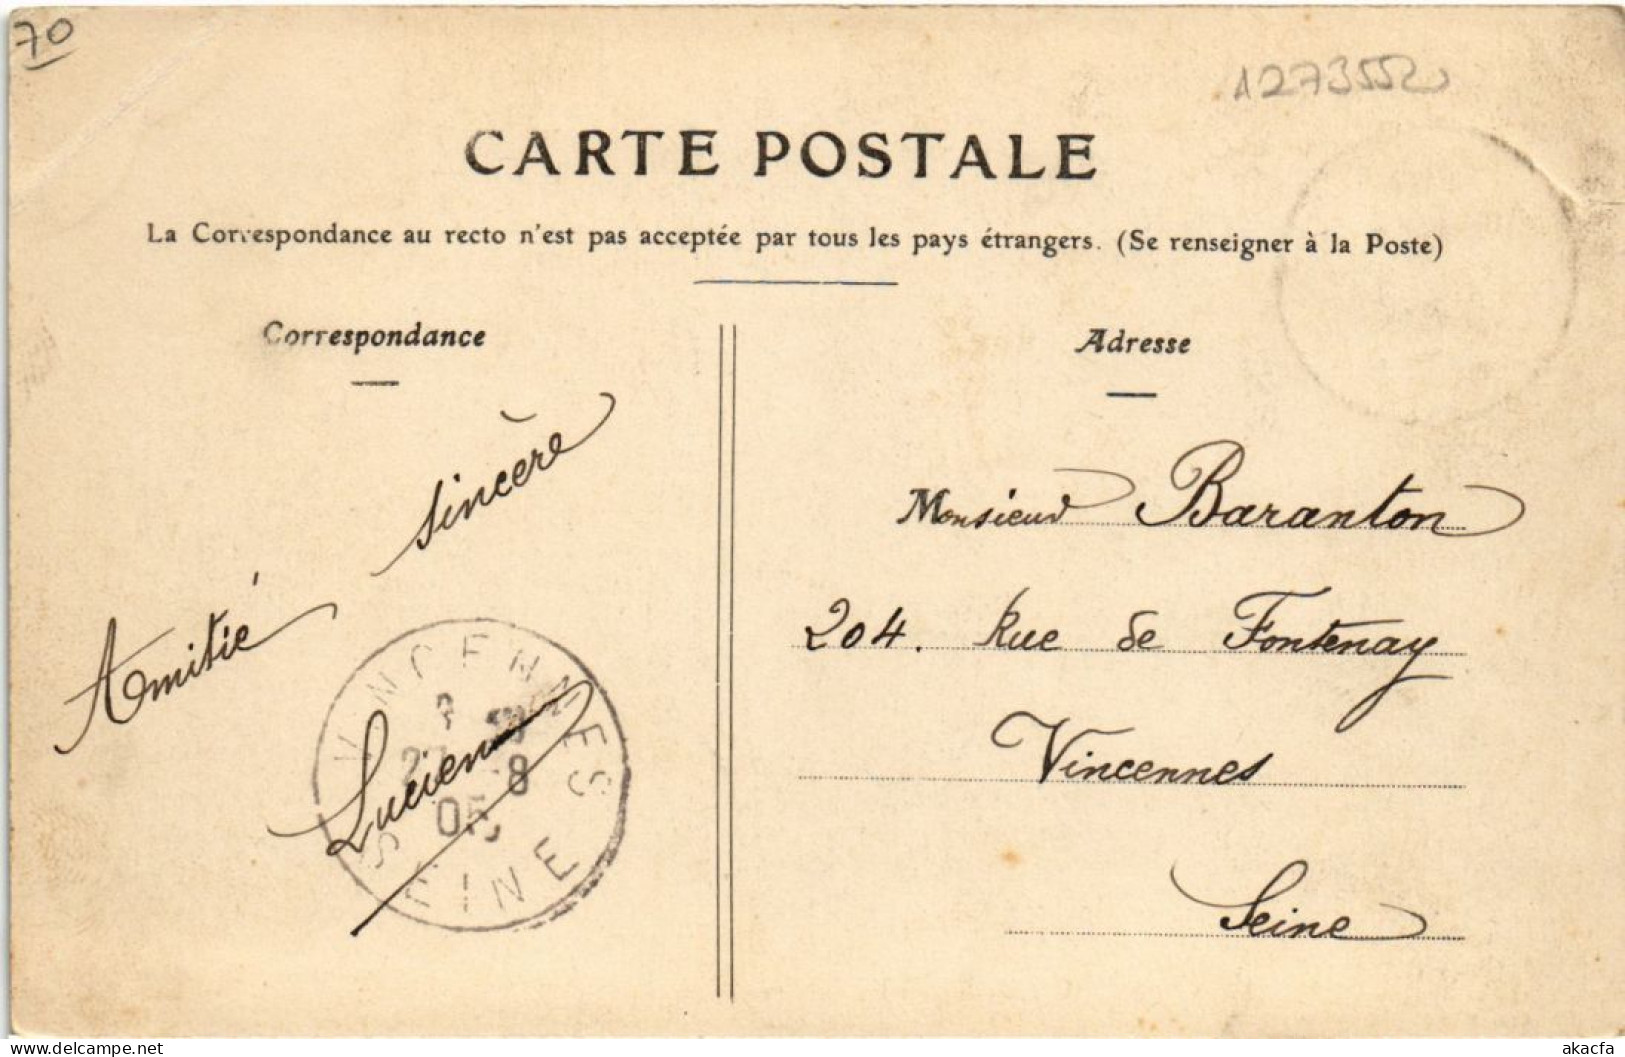 70
1273552
CARTE POSTALE
La Correspondance au recto n'est pas acceptée par tous les pays étrangers. (Se renseigner à la Poste)
Correspondance
Adresse
Amitié sincère
Lucien
VINCENNES
8
05
SEINE
Monsieur Baranton
204. Rue de Fontenay
Vincennes
Seine
akacfa
www.delcampe.net